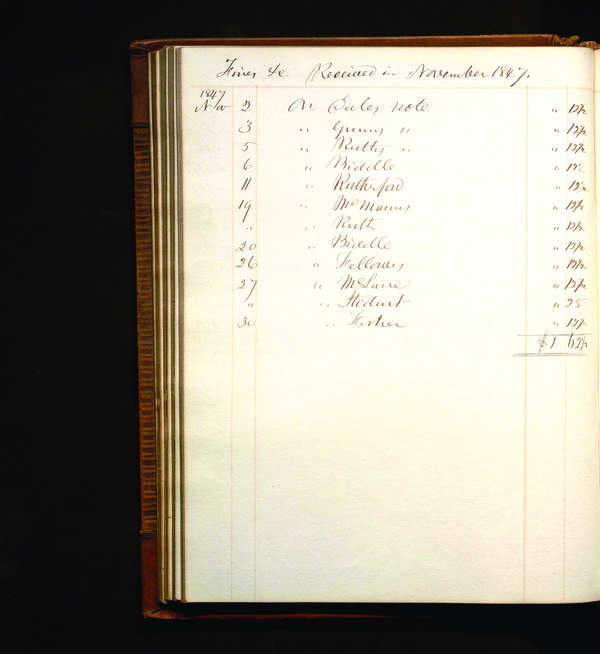 Fines &c. Received in November 1847.
1847
Nov 2 On note " 12½
3 " " " 12½
5 " Ruths " " 12½
6 " Biddle " 12½
11 " Rutherford " 12½
19 " McManus " 12½
" " Ruth " 12½
20 " Biddle " 12½
26 " Fellowes " 12½
27 " McLane " 12½
" " Stodart " 25
30 " Fisher " 12½
$1 62½